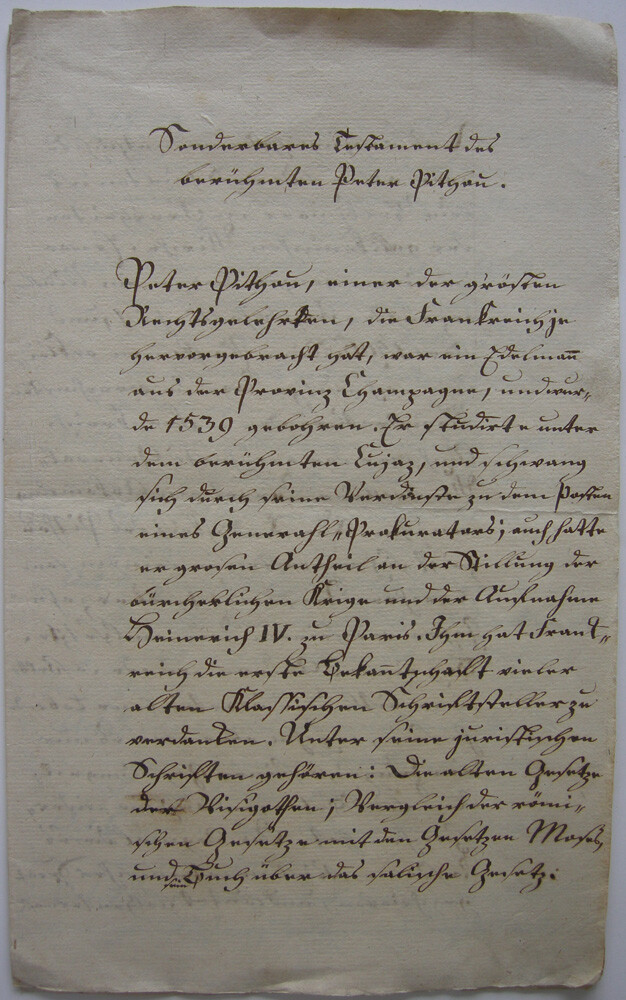 Sonderbares Testament des
berühmten Peter Pithou.
Peter Pithou, einer der grösten
Rechtsgelehrten, die Frankreich je
hervorgebracht hat, war ein Edelmann
aus der Provinz Champagne, und wur„
de 1539 gebohren. Er studirte unter
dem berühmten Cujaz, und schwang
sich durch seine Verdinste zu dem Posten
eines Generahl„Prokurators; auch hatte
er grosen Antheil an der Stillung der
bürcherlichen Krige und der Aufnahme
Heinerich IV. zu Paris. Ihm hat Frank„
reich die erste Bekanntschafft vieler
alten Klassischen Schriftsteller zu
verdanken. Unter seine juristischen
Schriften gehören: Die alten Gesetze
der Visigothen; Vergleich der römi„
schen Gesetze mit den Gesetzen Moses,
und sein Buch über das salische Gesetz: